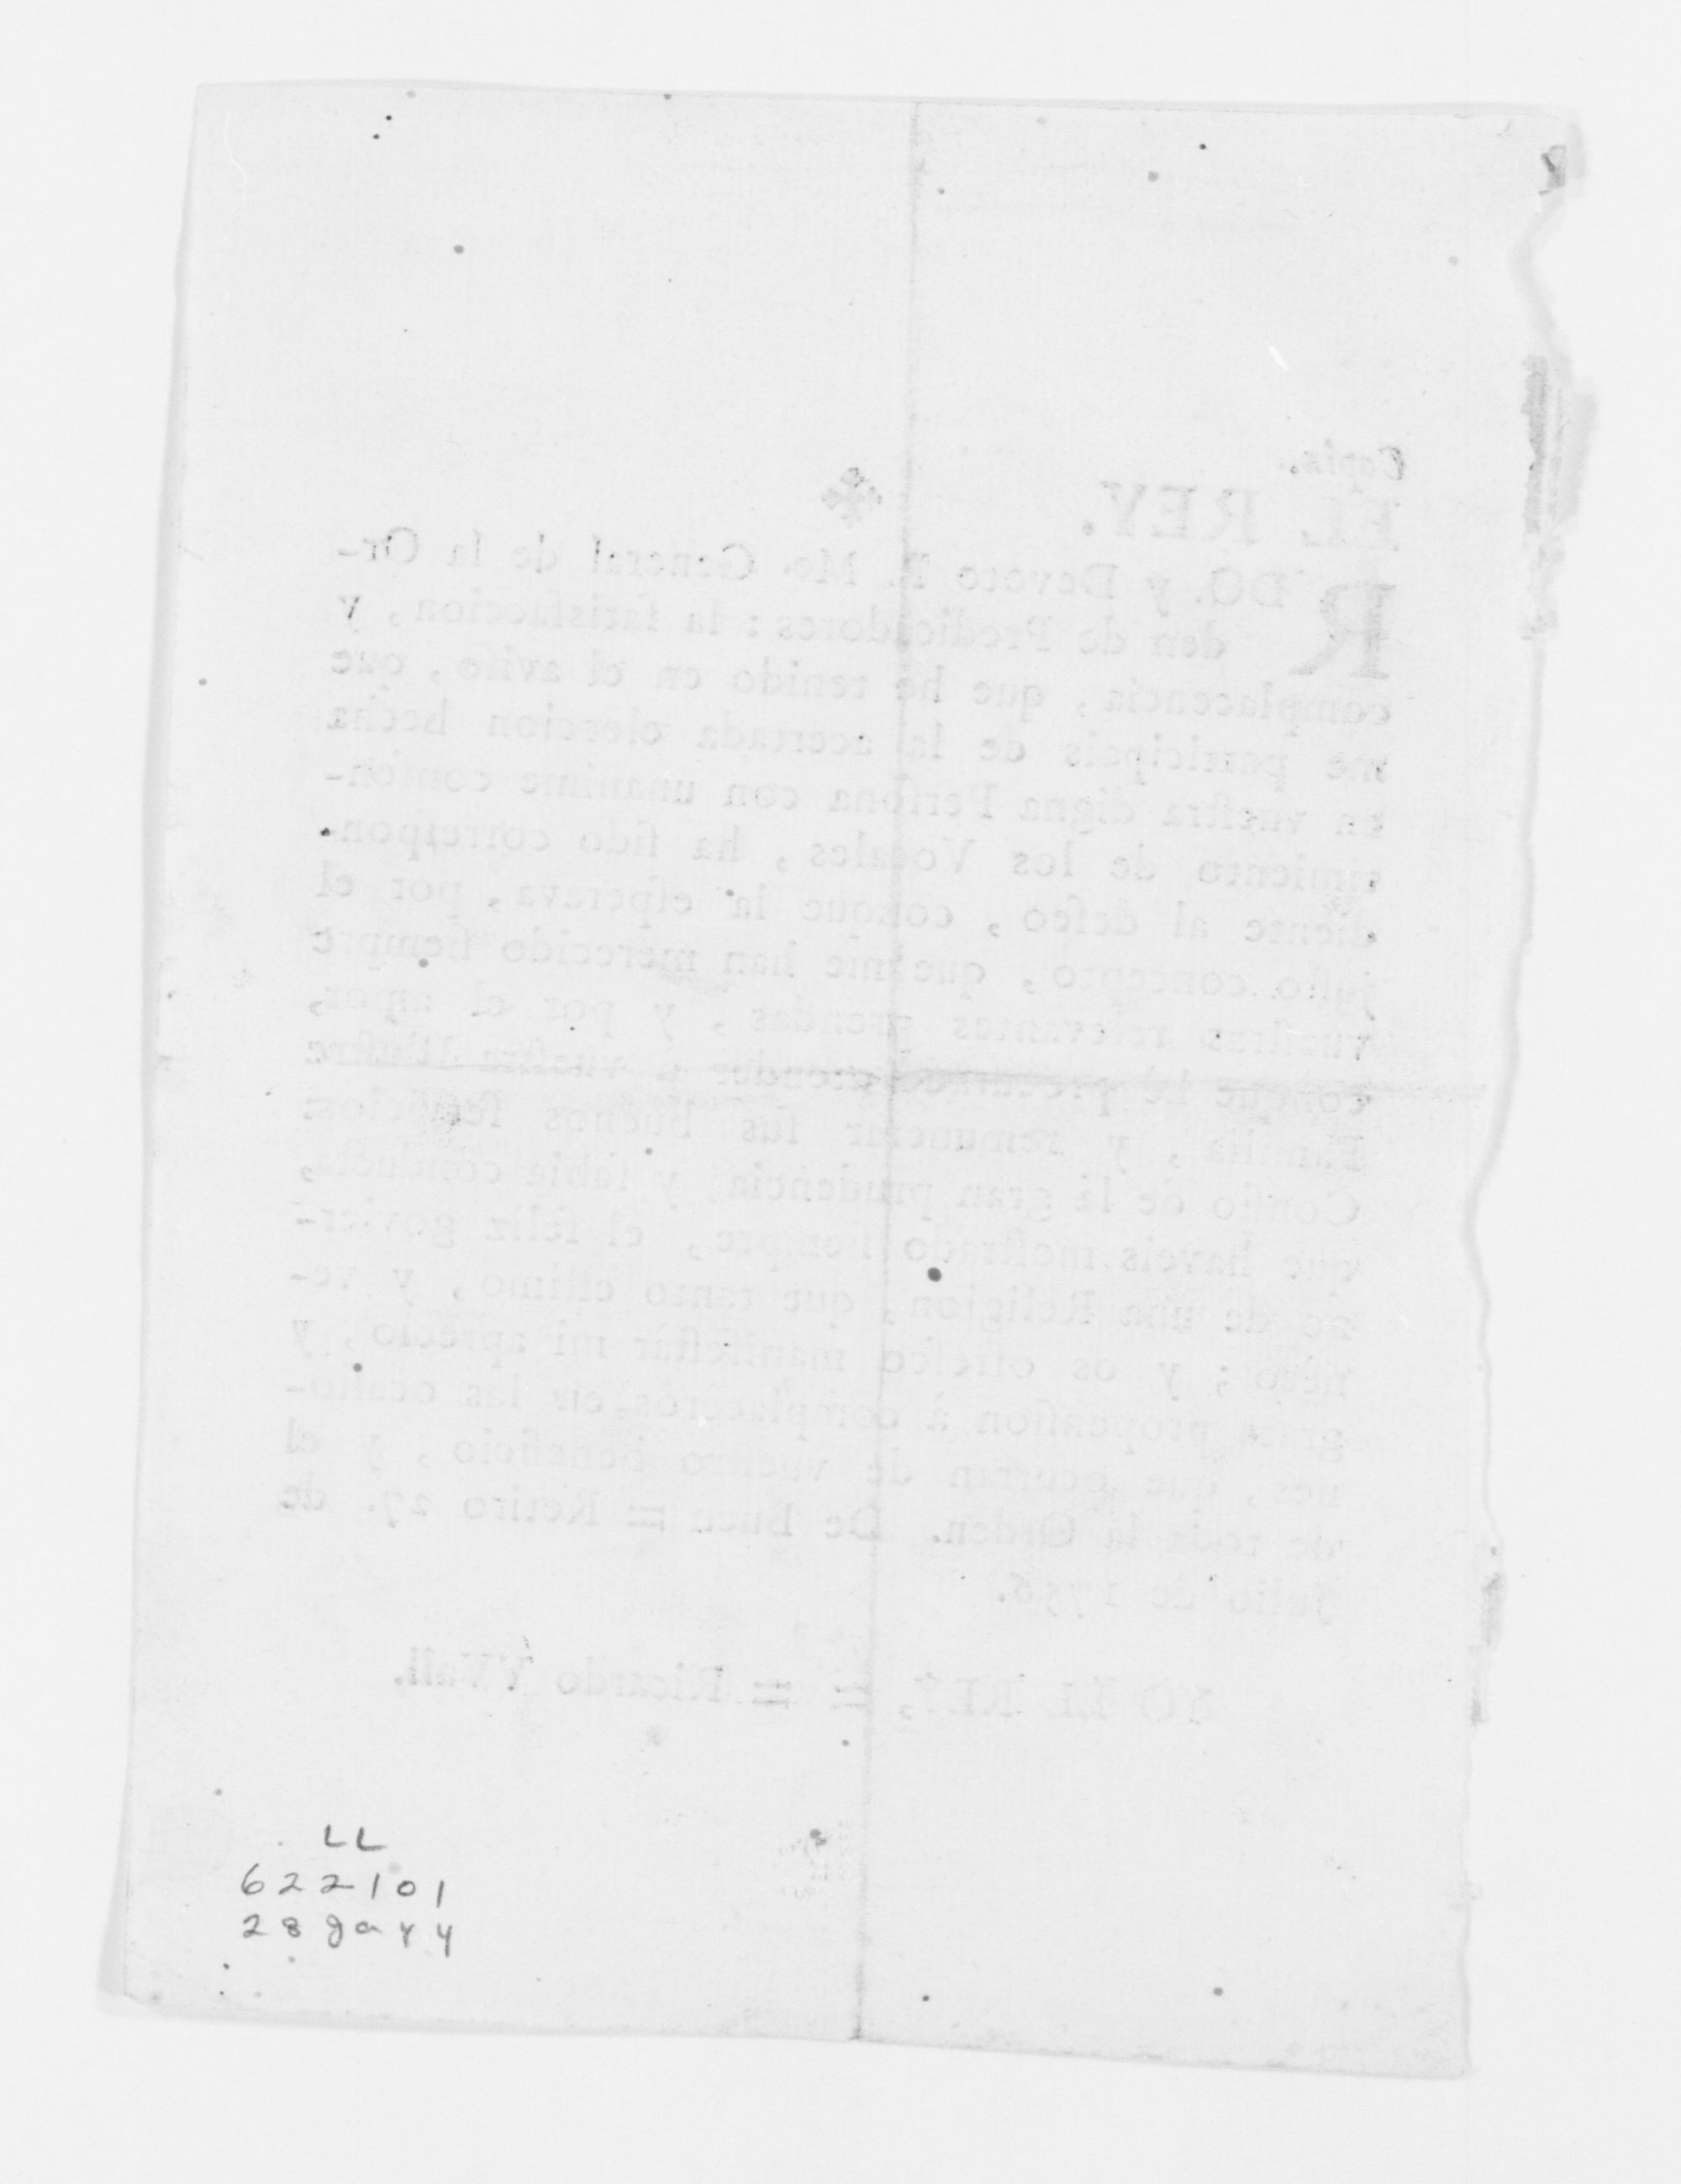 Copia.
EL REY.
RDO. y Devoto P. Mo. General de la Or-
den de Predicadores: la ſatisfaccion, y
complacencia, que he tenido en el aviſo, que
me participais de la acertada eleccion hecha
en vueſtra digna Perſona con unanime conſen-
timiento de los Vocales, ha ſido correſpon-
diente al deſeo, conque la eſperava, por el
juſto concepto, que me han merecido ſiempre
vueſtras relevantes prendas, y por el amor,
conque he procurado atender a vueſtra Illuſtre
Familia, y remunerar ſus buenos ſervicios:
Confio de la gran prudencia, y ſabia conducta,
que haveis moſtrado ſiempre, el feliz govier-
no de una Religion, que tanto eſtimo, y ve-
nero; y os ofreſco manifeſtar mi aprecio, y
gran propenſion à complaceros, en las ocaſio-
nes, que ocurran de vueſtro beneficio, y el
de toda la Orden. De Buen = Retiro 27. de
Julio de 1756.
YO EL REY, = = Ricardo VVall.
LL
622101
28 ja 44